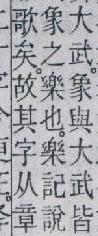 大武。象與大武皆
象之樂也。樂記說
歌矣。故其字从章